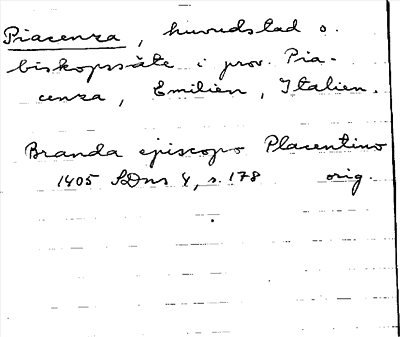 Piacenza, huvudstad o.
biskopssäte i prov. Pia-
cenza, Emilien, Italien.
Branda episcopo Placentino
1405 SDns 4, s. 178 orig.